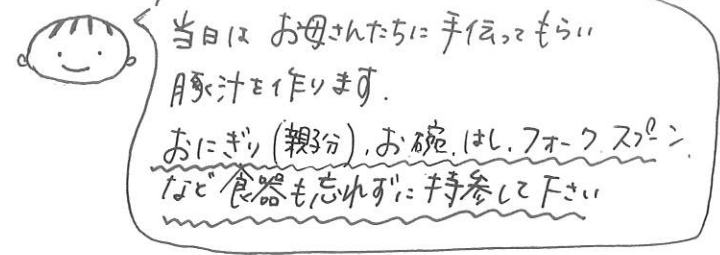 当日は お母さんたちに 手伝ってもらい
豚汁を作ります.
おにぎり(親子分), お碗, はし, フォーク スプーン,
など 食器も忘れずに持参して下さい